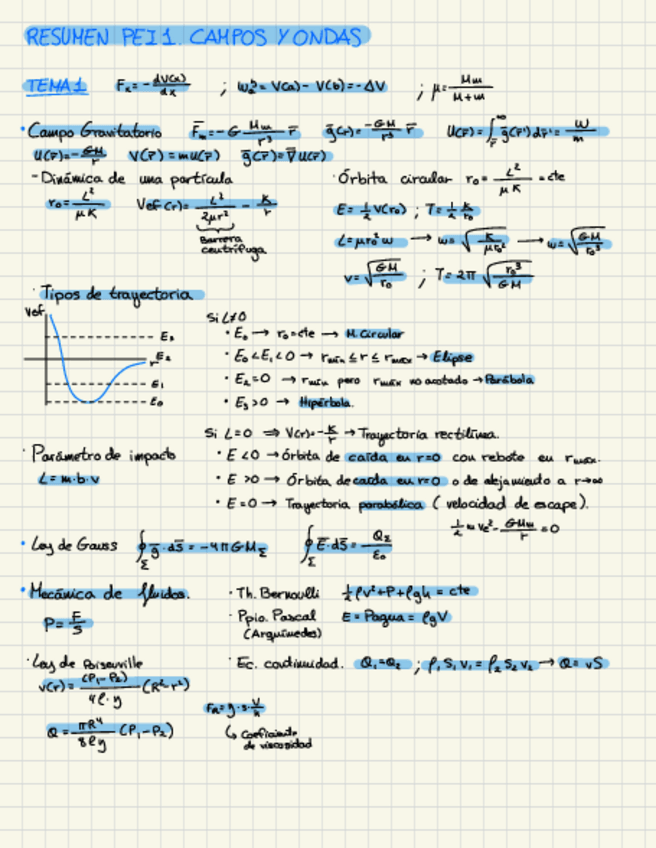 RESUMEN PEI 1. CAMPOS Y ONDAS
TEMA 1 Fx = - dV(x)/dx ; w_a^b = V(a) - V(b) = -ΔV ; μ = Mm/M+m
· Campo Gravitatorio F̄m = -G Mm/r³ r̄ ḡ(r) = -GM/r³ r̄ U(r̄) = ∫_r̄^∞ ḡ(r̄') dr̄' = W/m
U(r̄) = -GM/r V(r̄) = mU(r̄) ḡ(r̄) = ∇̄U(r̄)
- Dinámica de una partícula
r₀ = L²/μK Vef(r) = L²/2μr² - K/r
Barrera
centrífuga
· Órbita circular r₀ = L²/μK = cte
E = ½ V(r₀) ; T = ½ K/r₀
L = μr₀²ω → ω = √(K/μr₀³) → ω = √(GM/r₀³)
v = √(GM/r₀) ; T = 2π √(r₀³/GM)
· Tipos de trayectoria
Vef
E₃
E₂
r
E₁
E₀
Si L≠0
• E₀ → r₀ = cte → M. Circular
• E₀ < E₁ < 0 → rmín ≤ r ≤ rmax → Elipse
• E₂ = 0 → rmín pero rmáx no acotado → Parábola
• E₃ > 0 → Hipérbola.
Si L = 0 ⇒ V(r) = -K/r → Trayectoria rectilínea.
• E < 0 → Órbita de caída en r=0 con rebote en rmax.
• E > 0 → Órbita de caída en r=0 o de alejamiento a r→∞
• E = 0 → Trayectoria parabólica (velocidad de escape).
½ m ve² - GMm/r = 0
· Parámetro de impacto
L = m·b·v
· Ley de Gauss ∮_Σ ḡ·ds̄ = -4πGM_Σ ∮_Σ Ē·ds̄ = Q_Σ/ε₀
· Mecánica de fluidos.
P = F/S
· Th. Bernoulli ½ρv² + P + ρgh = cte
· Ppio. Pascal E = Pagua = ρgV
(Arquímedes)
· Ley de Poiseuille
v(r) = (P₁-P₂)/4l·η (R²-r²)
Q = πR⁴/8lη (P₁-P₂)
· Ec. continuidad. Q₁ = Q₂ ; ρ₁S₁v₁ = ρ₂S₂v₂ → Q = vS
↳ Coeficiente
de viscosidad